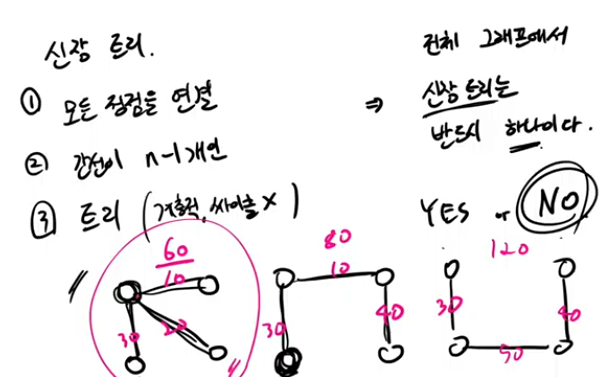 신장 트리.
① 모든 정점을 연결
② 간선이 n-1개인
③ 트리 ( 싸이클 X )
전체 그래프에서
⇒ 신장 트리는
반드시 하나이다.
YES or NO
60
10
30
20
80
10
30
40
120
30
40
50